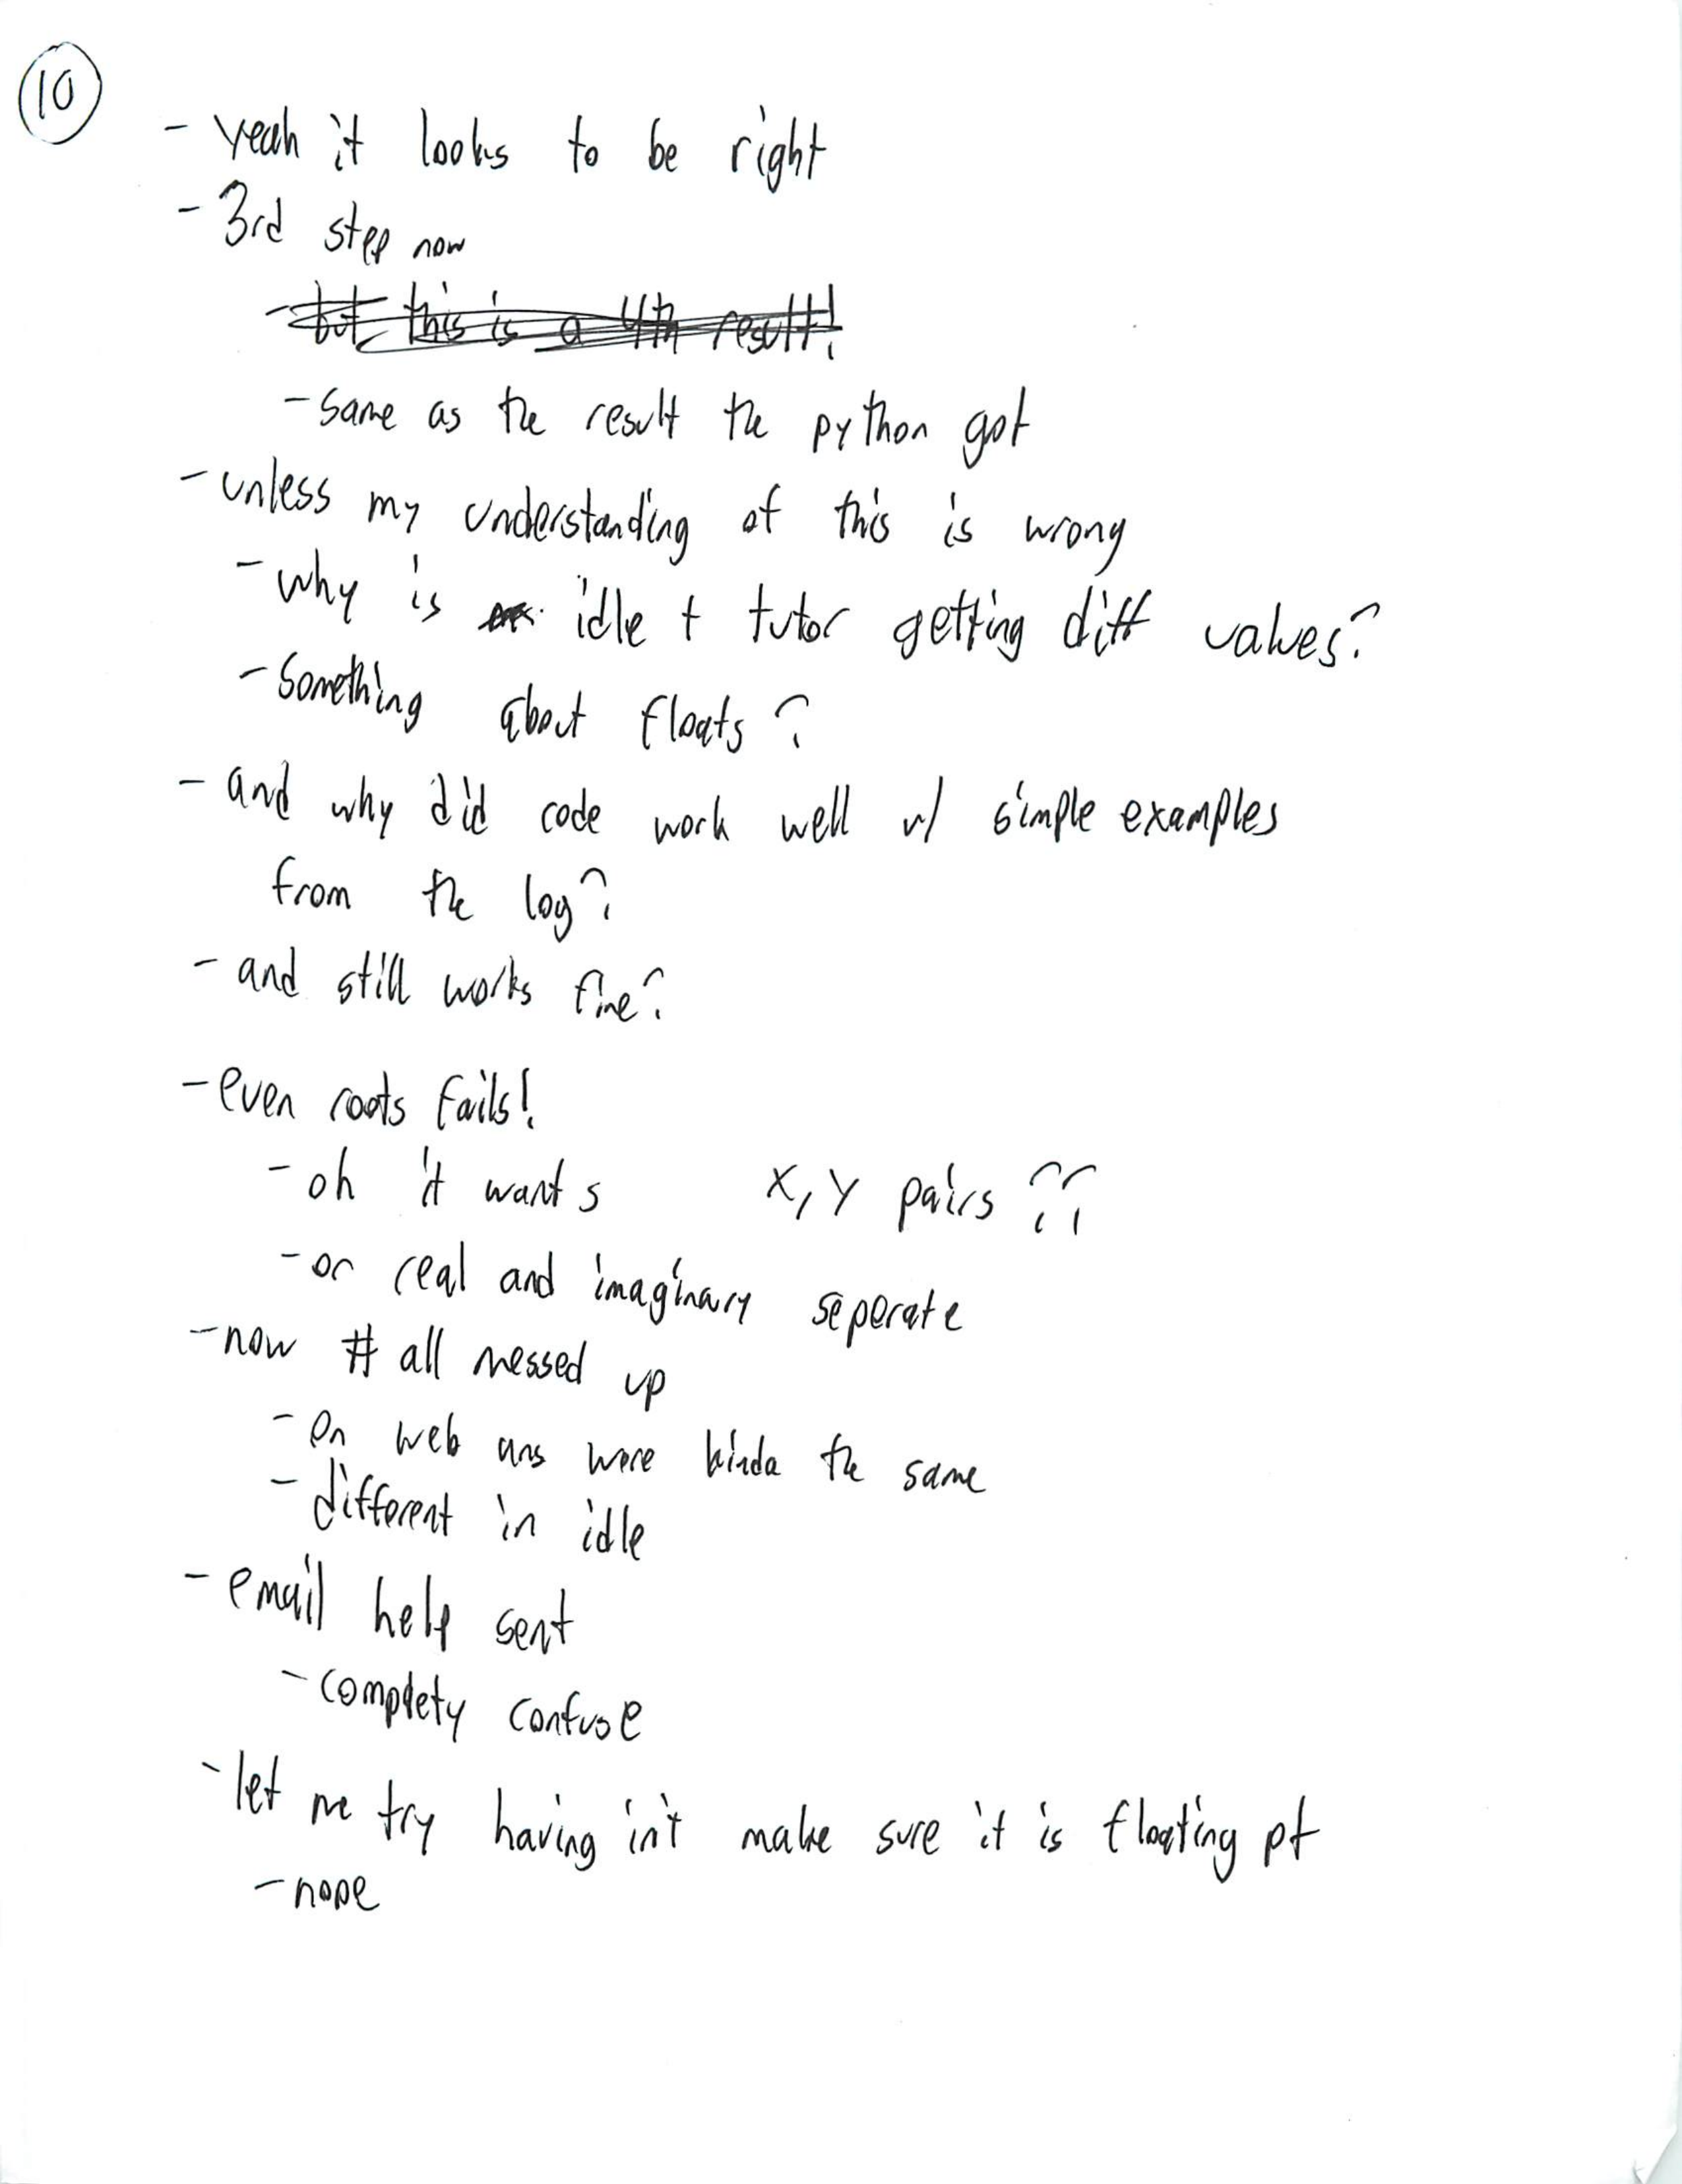 10
- yeah it looks to be right
- 3rd step now
- but this is a 4th result!
- same as the result the python got
- unless my understanding of this is wrong
- why is idle + tutor getting diff values?
- something about floats?
- and why did code work well w/ simple examples
from the log?
- and still works fine?
- even roots fails!
- oh it wants X, Y pairs ??
- or real and imaginary seperate
- now # all messed up
- on web ans were kinda the same
- different in idle
- email help sent
- complety confuse
- let me try having init make sure it is floating pt
- nope